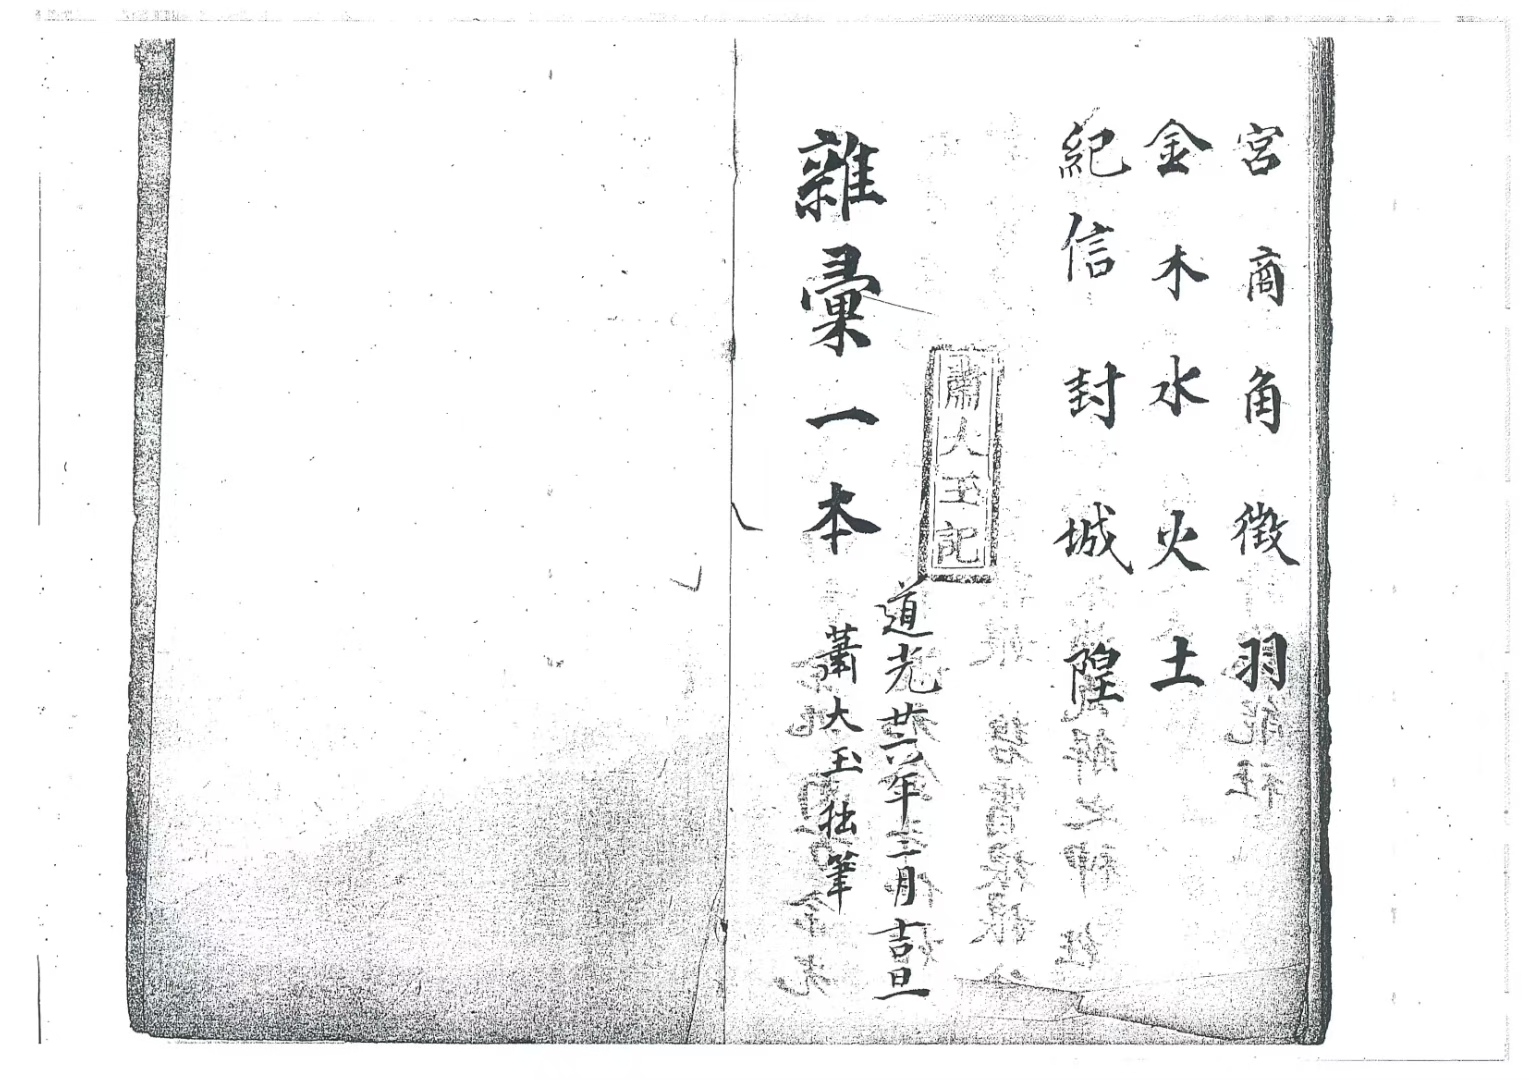 宮商角徵羽
金木水火土
紀信封城隍
蕭大玉記
道光廿六年三月吉旦
雜彙一本
蕭大玉拙筆